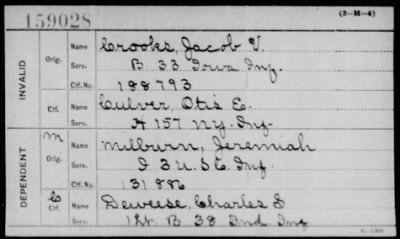 159028
(3-M-4)
INVALID
Orig.
Name
Crooks, Jacob V.
Serv.
B 33 Iowa Inf.
Ctf. No.
188793
Ctf.
Name
Culver, Otis E.
Serv.
H 157 NY. Inf.
DEPENDENT
M
Orig.
Name
Milburn, Jeremiah
Serv.
I 3 U.S.C. Inf.
Ctf. No.
131886
C
Ctf.
Name
Deweese, Charles S
Serv.
1 Lt. B 38 Ind Inf